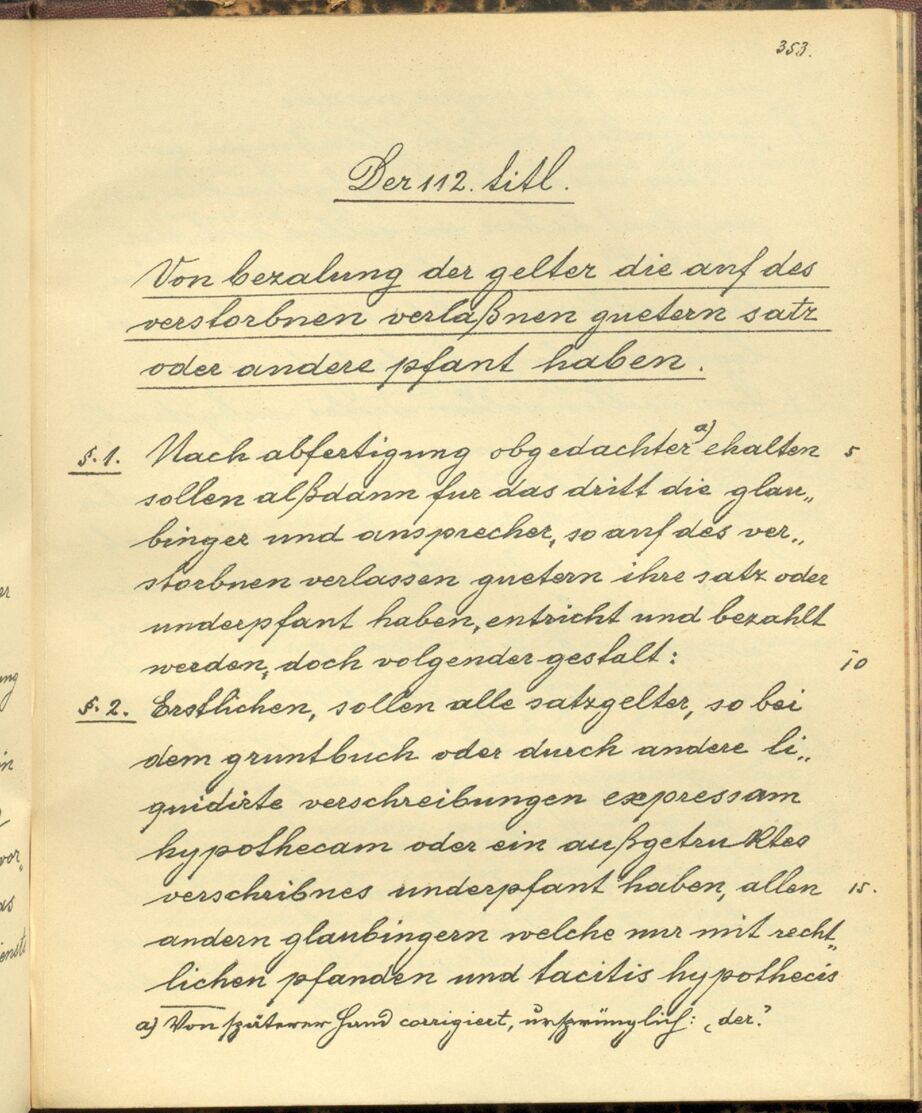 353.
Der 112. titl.
Von bezalung der gelter die auf des
verstorbnen verlaßnen guetern satz
oder andere pfant haben.
§. 1. Nach abfertigung obgedachter a) ehalten 5
sollen alßdann fur das dritt die glau„
binger und ansprecher, so auf des ver„
storbnen verlassen guetern ihre satz oder
underpfant haben, entricht und bezahlt
werden, doch volgender gestalt: 10
§. 2. Erstlichen, sollen alle satzgelter, so bei
dem gruntbuch oder durch andere li„
quidirte verschreibungen expressam
hypothecam oder ein außgetruktes
verschribnes underpfant haben, allen 15.
andern glaubingern welche nur mit recht„
lichen pfanden und tacitis hypothecis
a) Von späterer Hand corrigiert, ursprünglich: „der."
er
ung
in
vor„
as
ienste